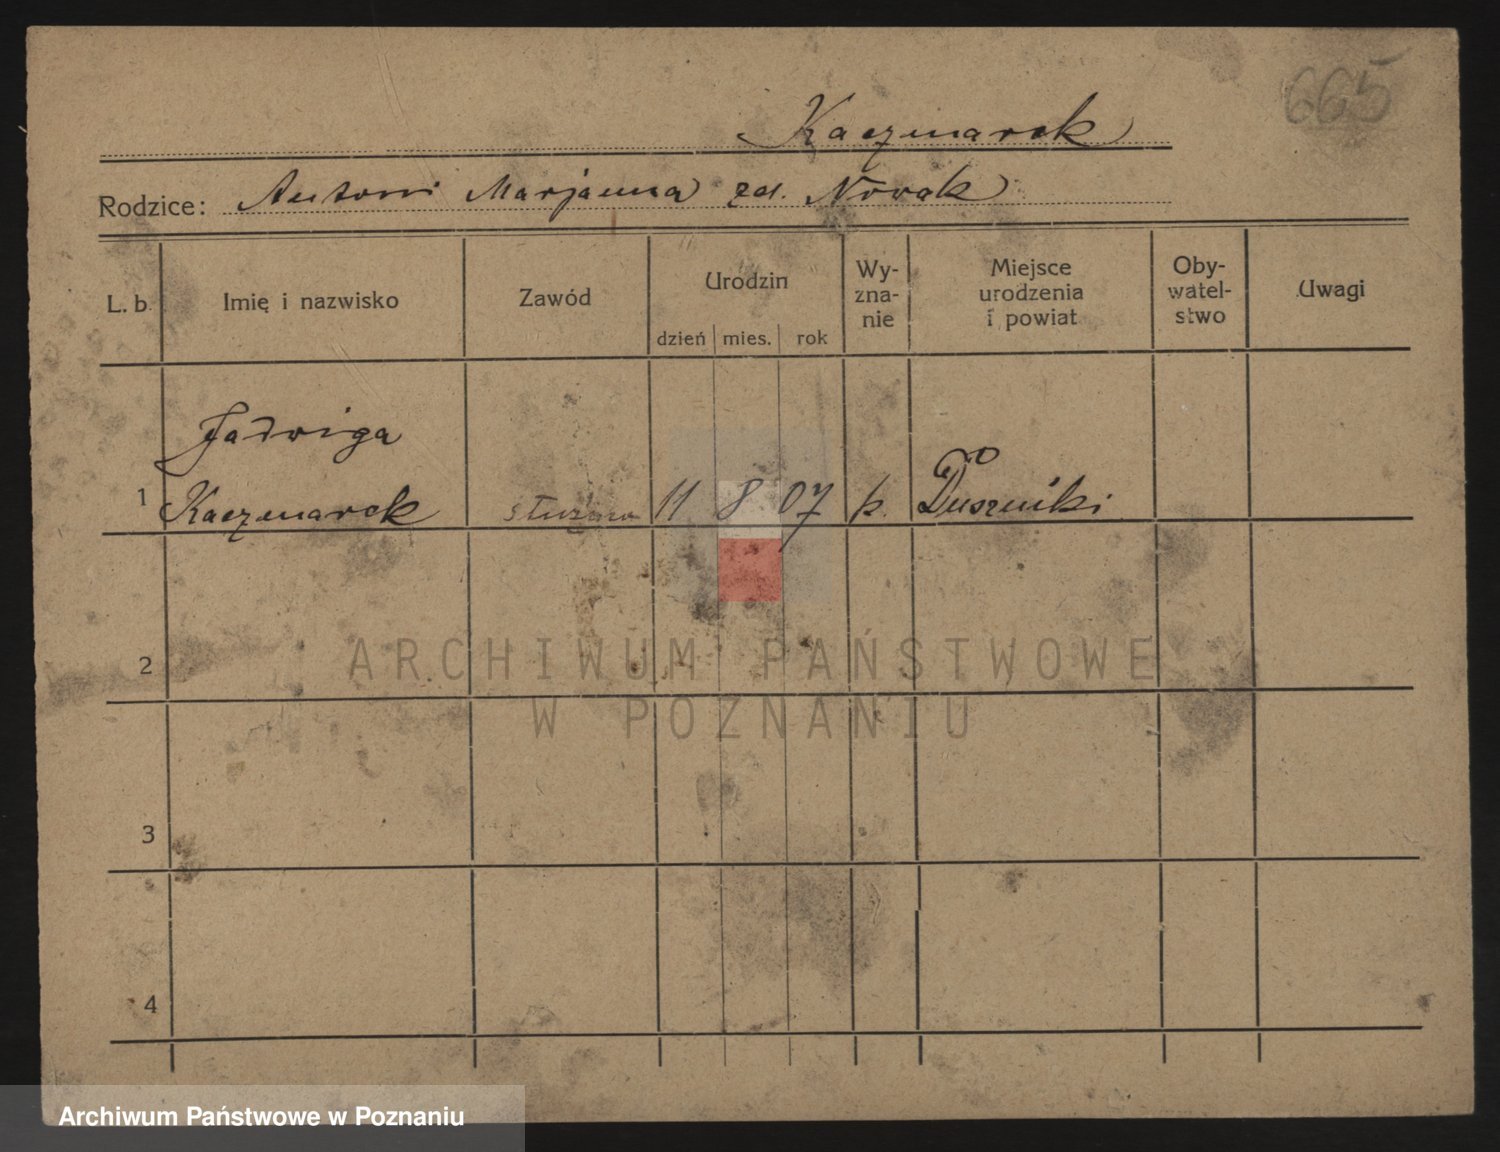 665
Kaczmarek
Rodzice: Antoni Marjanna zd. Nowak
L. b. Imię i nazwisko Zawód Urodzin dzień mies. rok Wy-zna-nie Miejsce urodzenia i powiat Oby-watel-stwo Uwagi
Jadwiga
1 Kaczmarek służąca 11 8 07 k. Duszniki
2
ARCHIWUM PAŃSTWOWE
W POZNANIU
3
4
Archiwum Państwowe w Poznaniu